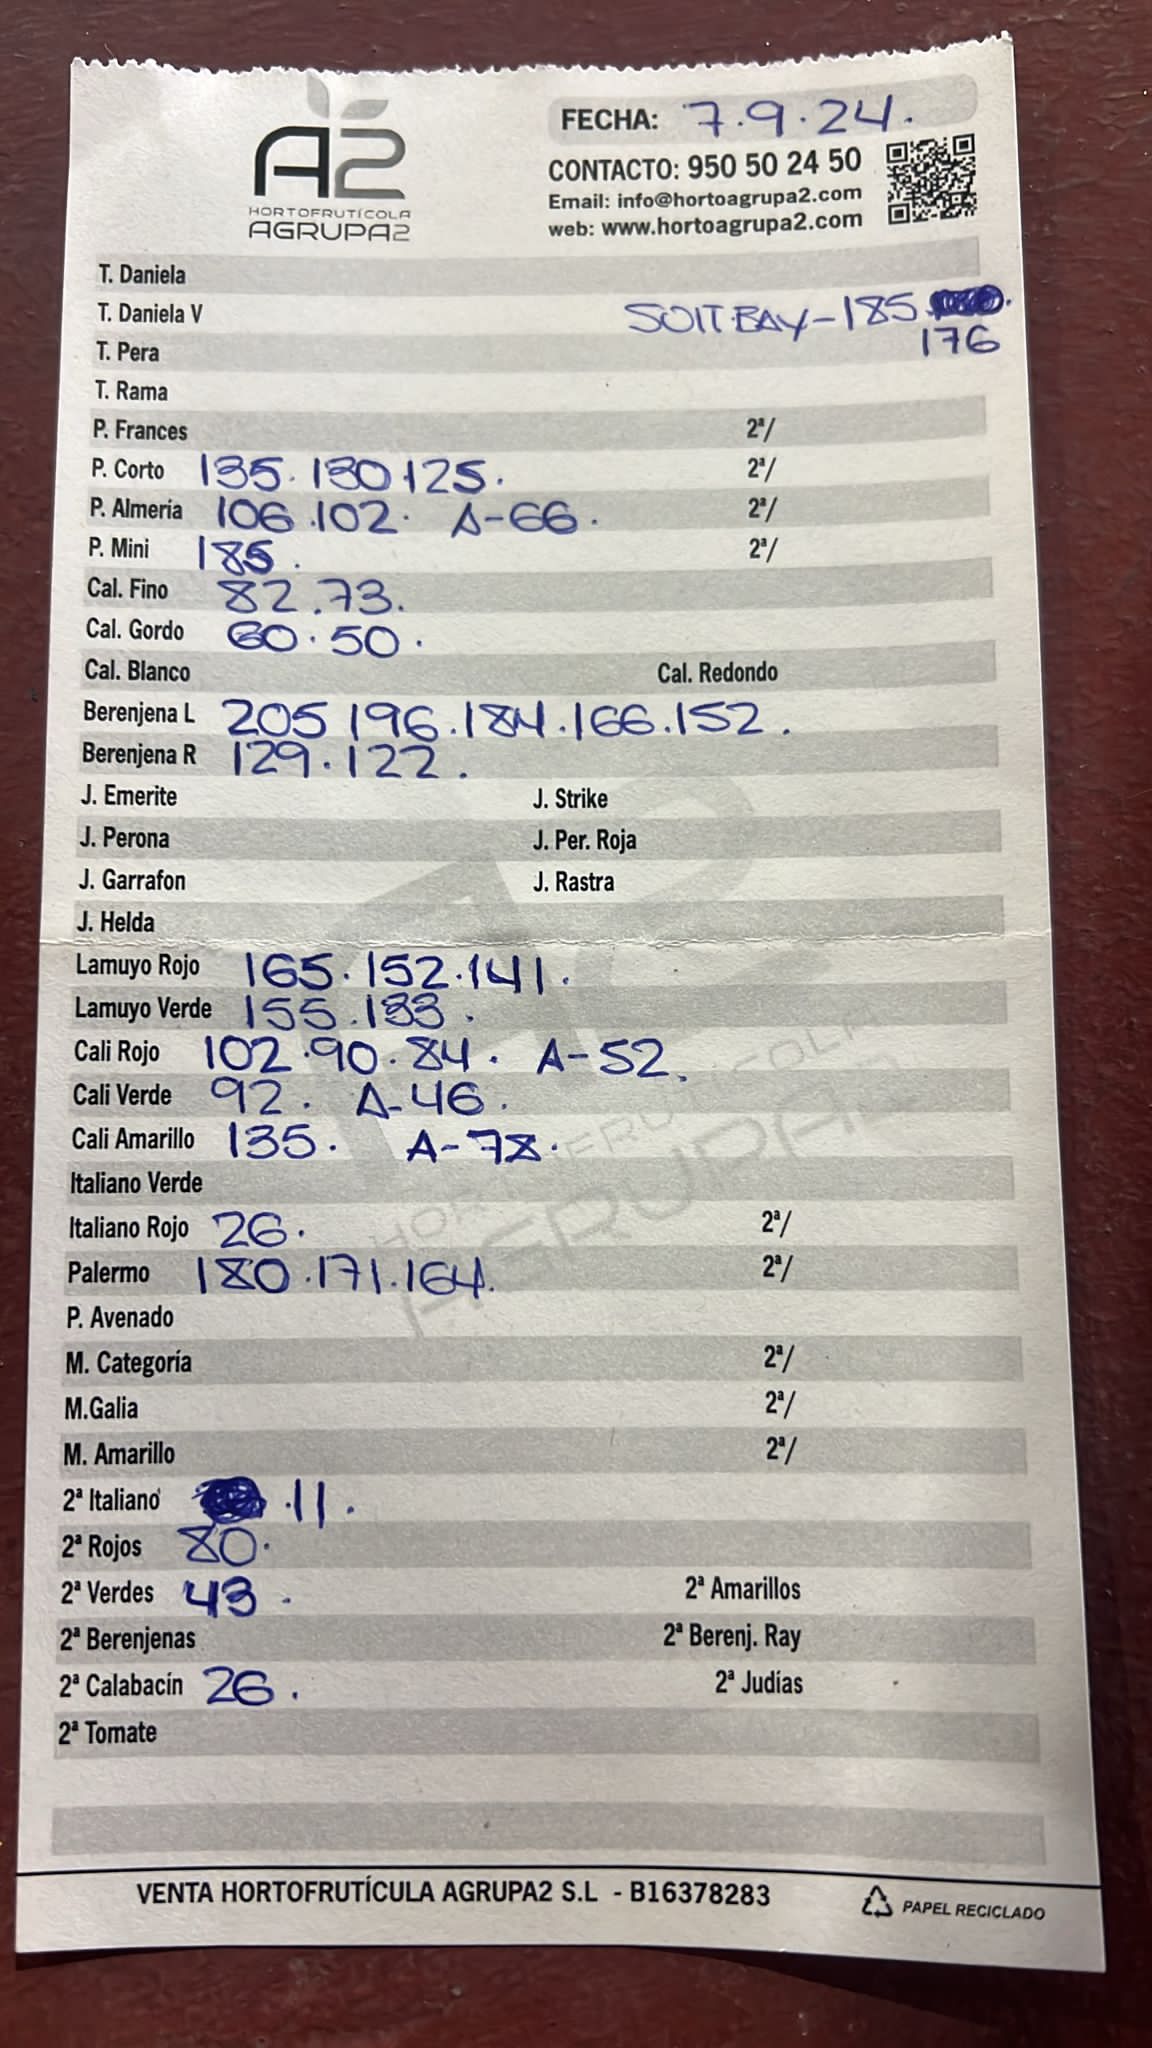 A2
HORTOFRUTÍCOLA
AGRUPA2
FECHA: 7.9.24.
CONTACTO: 950 50 24 50
Email: info@hortoagrupa2.com
web: www.hortoagrupa2.com
T. Daniela
T. Daniela V SOIT.BAY-185.
176
T. Pera
T. Rama
P. Frances 2ª/
P. Corto 135.130.125. 2ª/
P. Almería 106.102. A-66. 2ª/
P. Mini 185. 2ª/
Cal. Fino 82.73.
Cal. Gordo 60.50.
Cal. Blanco Cal. Redondo
Berenjena L 205 196.184.166.152.
Berenjena R 129.122.
J. Emerite J. Strike
J. Perona J. Per. Roja
J. Garrafon J. Rastra
J. Helda
Lamuyo Rojo 165.152.141.
Lamuyo Verde 155.133.
Cali Rojo 102.90.84. A-52.
Cali Verde 92. A-46.
Cali Amarillo 135. A-78.
Italiano Verde
Italiano Rojo 26. 2ª/
Palermo 180.171.164. 2ª/
P. Avenado
M. Categoría 2ª/
M.Galia 2ª/
M. Amarillo 2ª/
2ª Italiano .11.
2ª Rojos 80.
2ª Verdes 43. 2ª Amarillos
2ª Berenjenas 2ª Berenj. Ray
2ª Calabacín 26. 2ª Judías
2ª Tomate
VENTA HORTOFRUTÍCULA AGRUPA2 S.L - B16378283
PAPEL RECICLADO